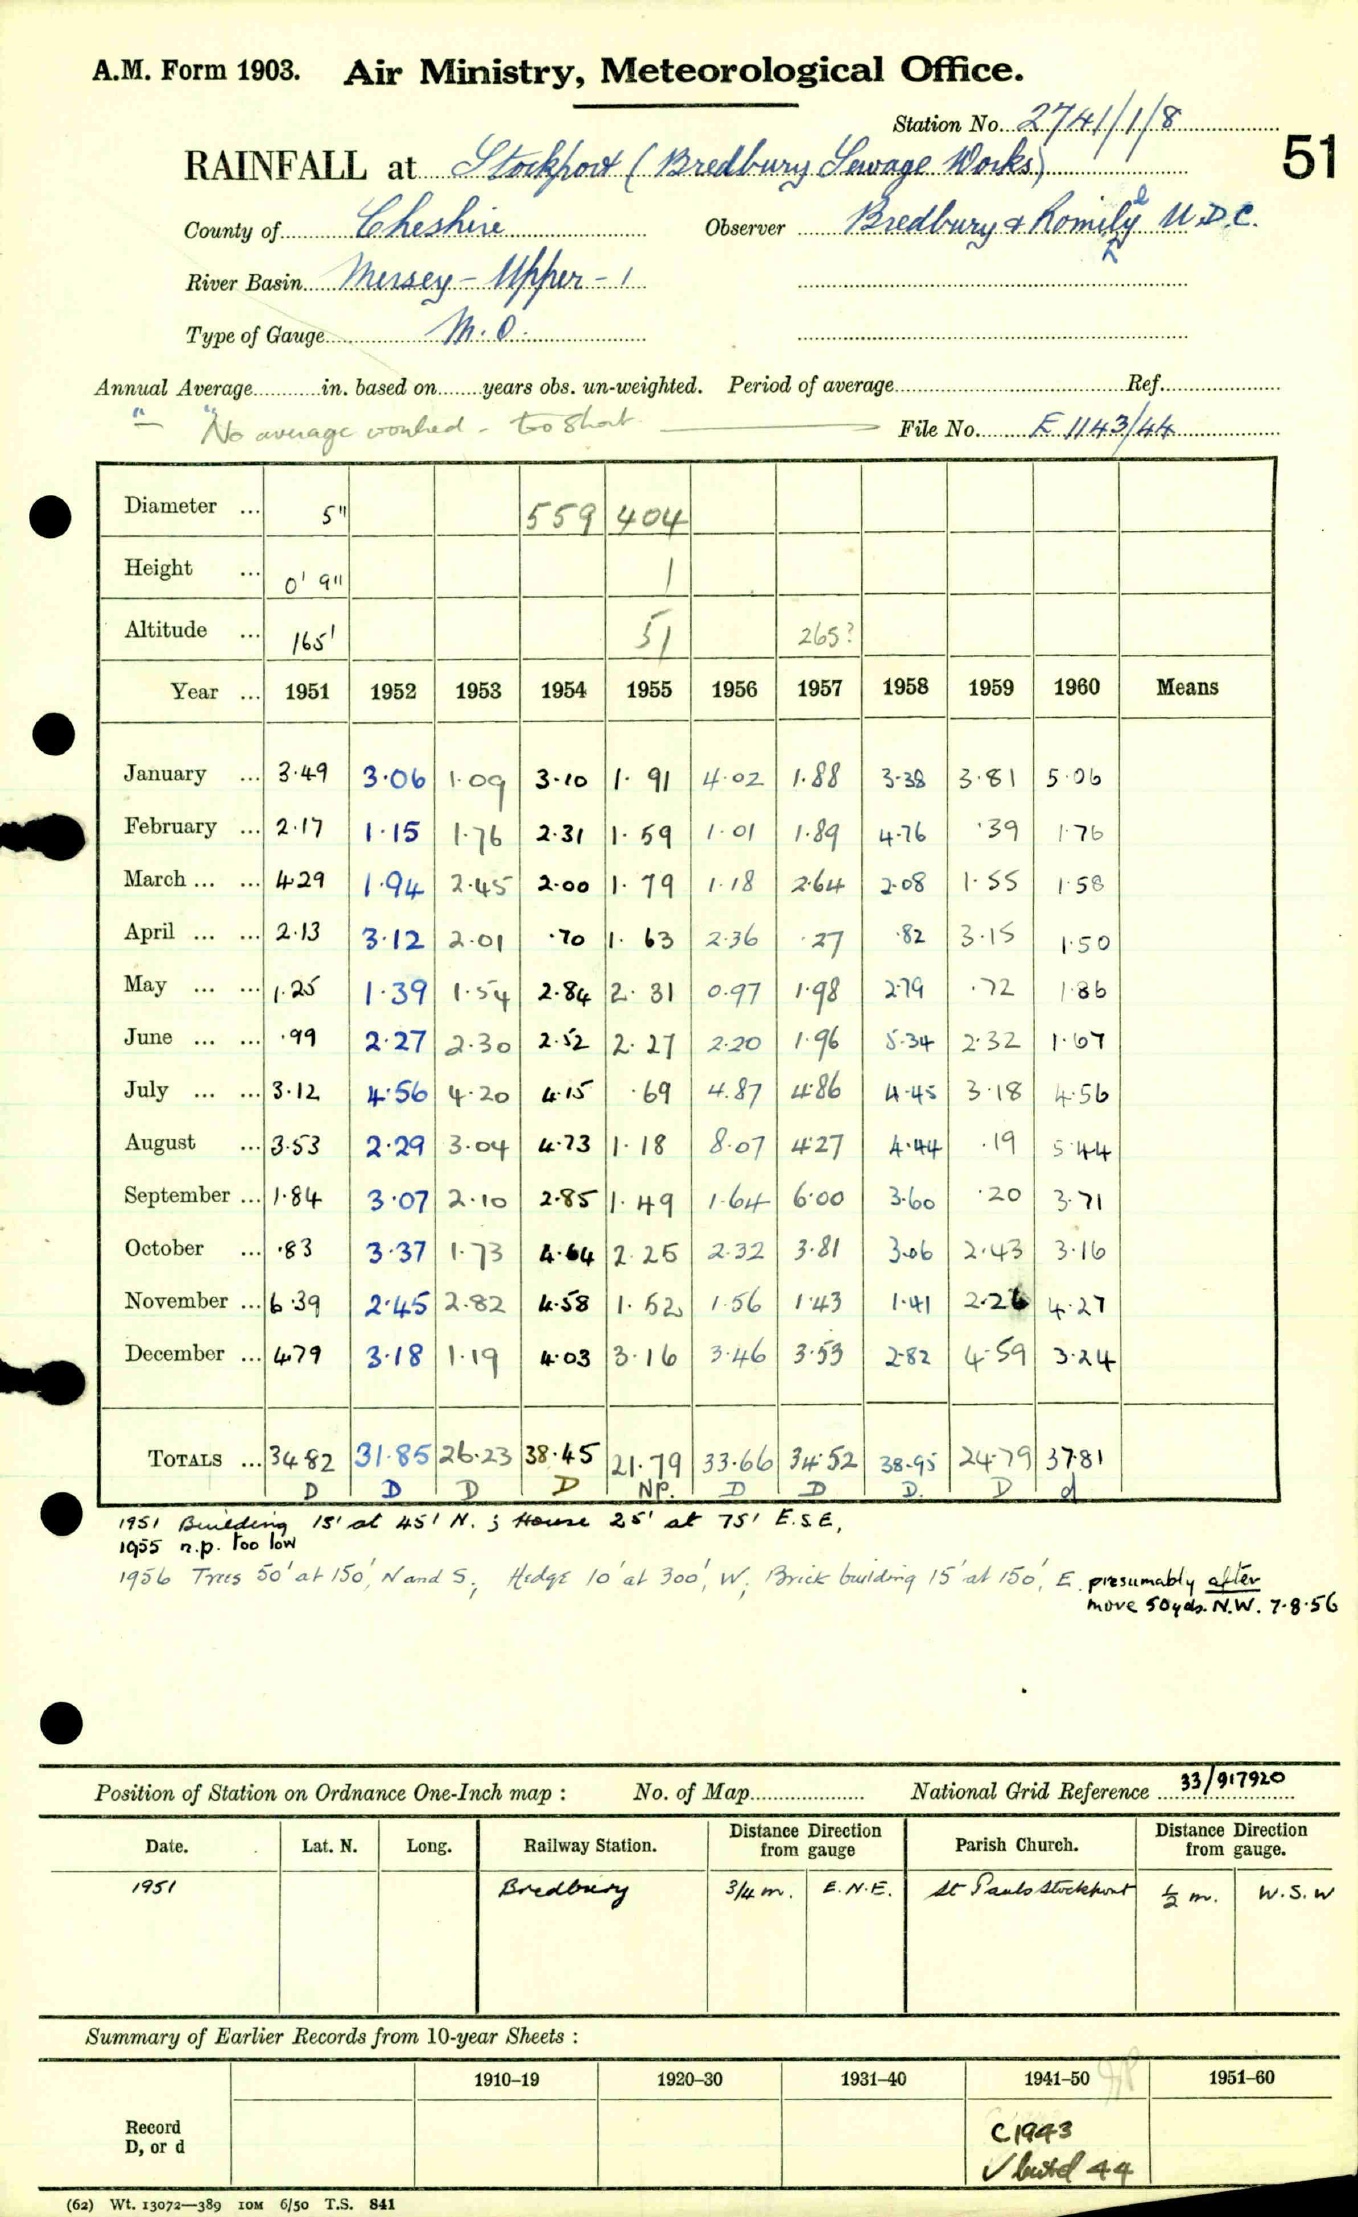 A.M. Form 1903. Air Ministry, Meteorological Office.
Station No. 2741/1/8
51
RAINFALL at Stockport (Bredbury Sewage Works)
County of Cheshire Observer Bredbury & Romiley U.D.C.
River Basin Mersey - Upper - 1
Type of Gauge M.O.
Annual Average in. based on years obs. un-weighted. Period of average Ref.
"No average worked - too short File No. E 1143/44
Diameter ... 5" 559 404
Height ... 0' 9" 1
Altitude ... 165' 51 265?
Year ... 1951 1952 1953 1954 1955 1956 1957 1958 1959 1960 Means
January ... 3.49 3.06 1.09 3.10 1.91 4.02 1.88 3.38 3.81 5.06
February ... 2.17 1.15 1.76 2.31 1.59 1.01 1.89 4.76 .39 1.76
March ... ... 4.29 1.94 2.45 2.00 1.79 1.18 2.64 2.08 1.55 1.58
April ... ... 2.13 3.12 2.01 .70 1.63 2.36 .27 .82 3.15 1.50
May ... ... 1.25 1.39 1.54 2.84 2.31 0.97 1.98 2.79 .72 1.86
June ... ... .99 2.27 2.30 2.52 2.27 2.20 1.96 5.34 2.32 1.67
July ... ... 3.12 4.56 4.20 4.15 .69 4.87 4.86 4.45 3.18 4.56
August ... 3.53 2.29 3.04 4.73 1.18 8.07 4.27 4.44 .19 5.44
September ... 1.84 3.07 2.10 2.85 1.49 1.64 6.00 3.60 .20 3.71
October ... .83 3.37 1.73 4.64 2.25 2.32 3.81 3.06 2.43 3.16
November ... 6.39 2.45 2.82 4.58 1.52 1.56 1.43 1.41 2.26 4.27
December ... 4.79 3.18 1.19 4.03 3.16 3.46 3.53 2.82 4.59 3.24
TOTALS ... 34.82 31.85 26.23 38.45 21.79 33.66 34.52 38.95 24.79 37.81
D D D D NP. D D D. D d
1951 Building 15' at 45' N. ; House 25' at 75' E.S.E,
1955 n.p. too low
1956 Trees 50' at 150', N and S; Hedge 10' at 300', W; Brick building 15' at 150', E. presumably after
move 50yds. N.W. 7.8.56
Position of Station on Ordnance One-Inch map : No. of Map National Grid Reference 33/917920
Date. Lat. N. Long. Railway Station. Distance Direction from gauge Parish Church. Distance Direction from gauge.
1951 Bredbury 3/4 m. E.N.E. St Pauls Stockport 1/2 m. W.S.W
Summary of Earlier Records from 10-year Sheets :
1910–19 1920–30 1931–40 1941–50 1951–60
Record
D, or d
C 1943
✓ but d 44
(62) Wt. 13072—389 10M 6/50 T.S. 841